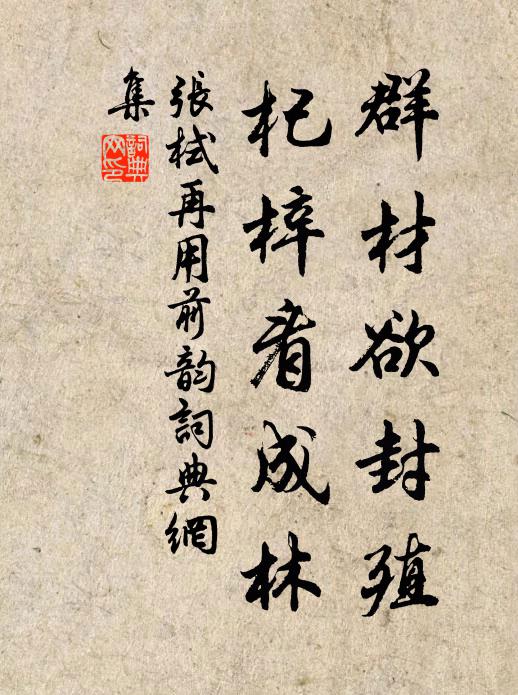 群材欲封殖
杞梓看成林
張栻再用前韵詞典網
集
詞典
网印